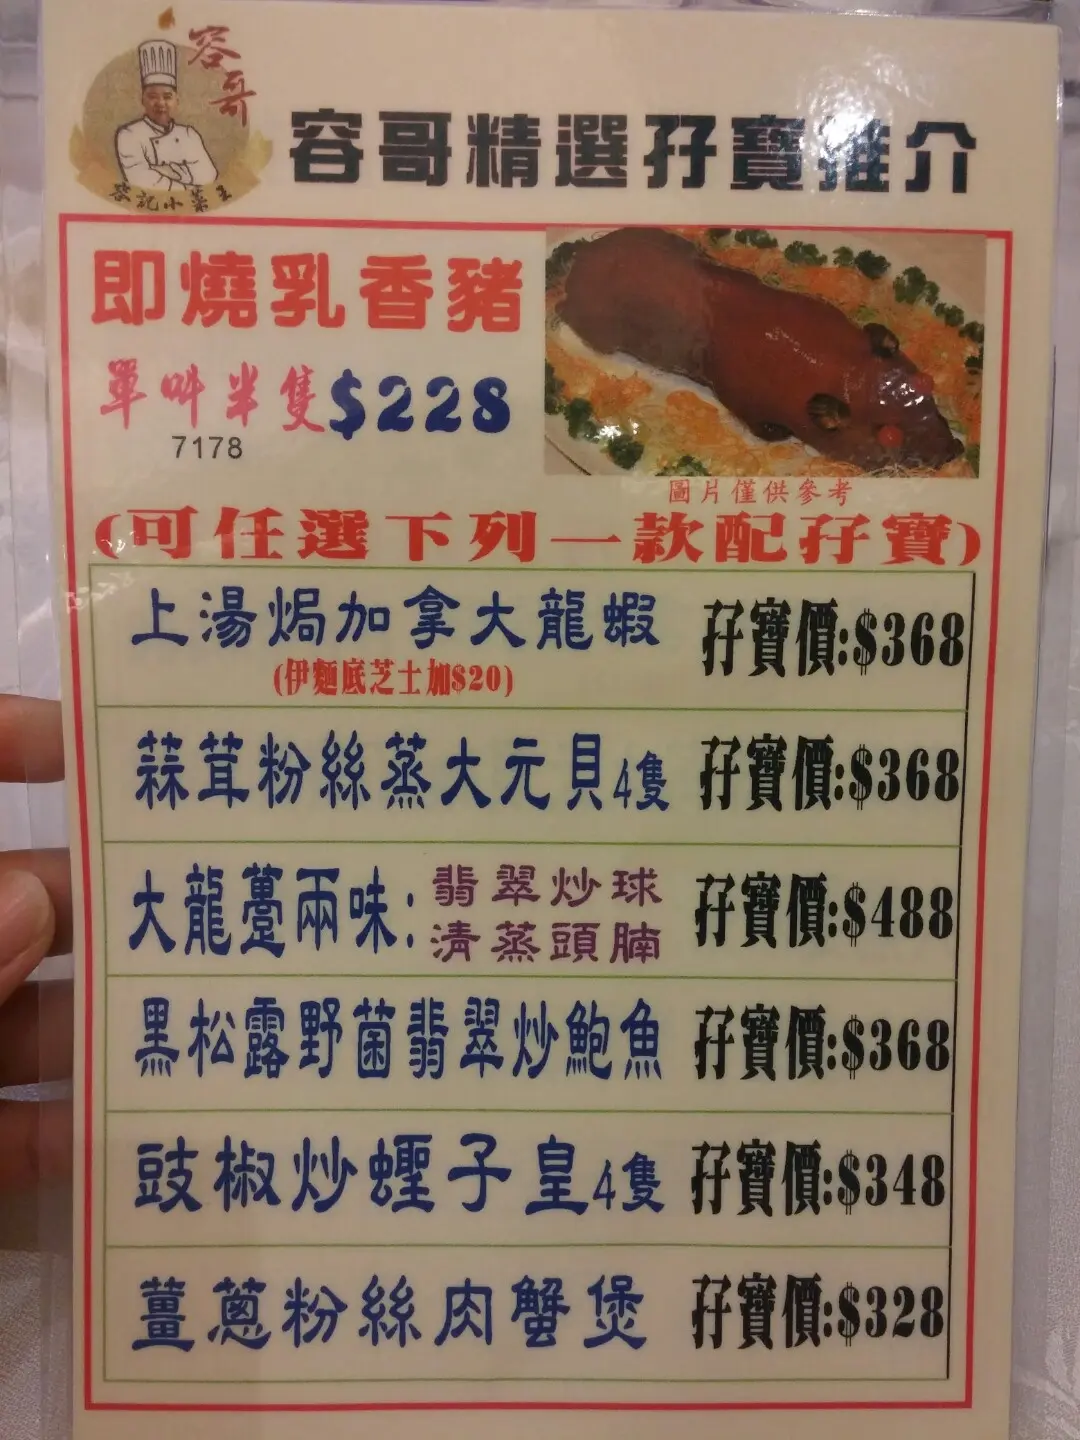 容哥
容記小菜王
容哥精選孖寶推介
即燒乳香豬
單叫半隻$228
7178
圖片僅供參考
(可任選下列一款配孖寶)
上湯焗加拿大龍蝦 孖寶價:$368
(伊麵底芝士加$20)
蒜茸粉絲蒸大元貝4隻 孖寶價:$368
大龍躉兩味: 翡翠炒球
清蒸頭腩 孖寶價:$488
黑松露野菌翡翠炒鮑魚 孖寶價:$368
豉椒炒蟶子皇4隻 孖寶價:$348
薑蔥粉絲肉蟹煲 孖寶價:$328